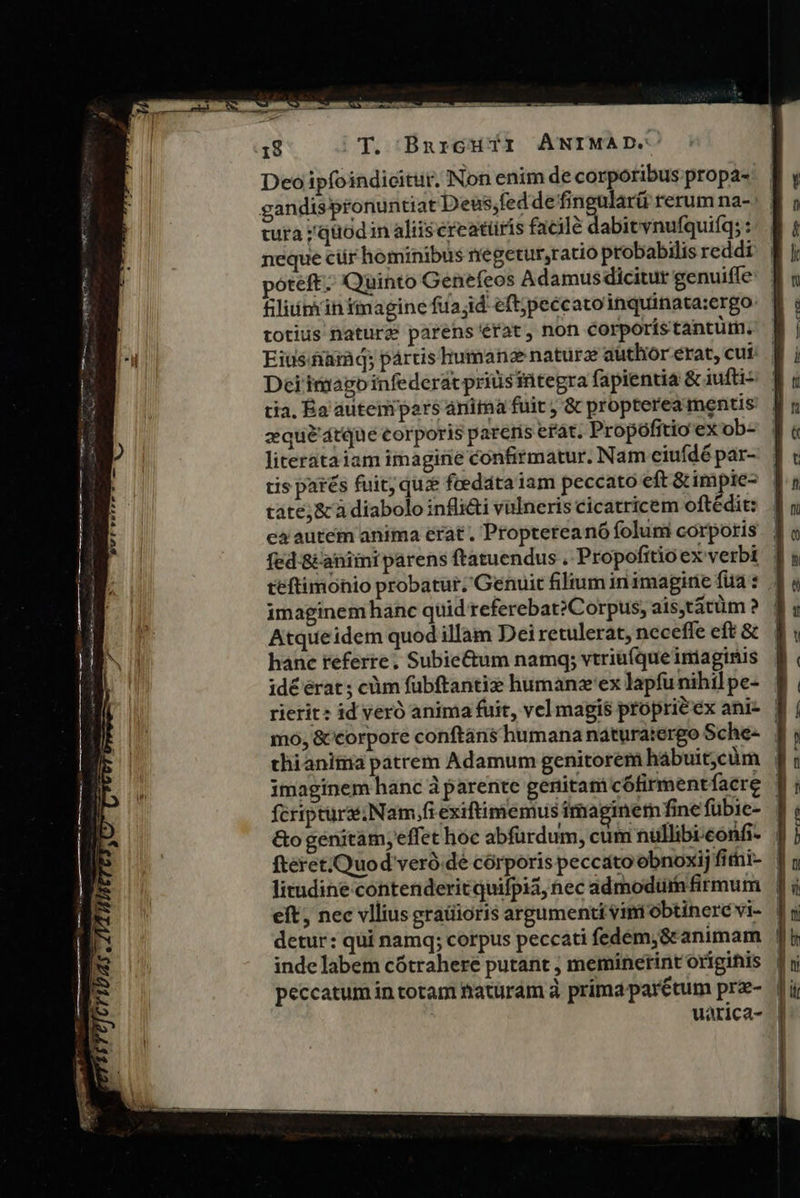 18 T. BnrgHtI ANIMAD.
Deo ipſo indicitur. Non enim de corporibus propa-
gandis pronuntiat Deus, ſed de ſingularū rerum na-
tura; quòd in aliis creatúris facilè dabit vnuſquiſq;:
neque cur hominibus negetur, ratio probabilis reddi
poteſt. Quinto Geneſeos Adamus dicitur genuiſſe
filium in imagine ſua, id eſt, peccato inquinata: ergo
totius naturæ parens erat, non corporis tantùm.
Eius namq; partis humanæ naturæ author erat, cui
Dei imago inſederat priùs integra ſapientia & iuſti-
tia. Ea autem pars anima fuit, & propterea mentis
æquè atque corporis parens erat. Propoſitio ex ob-
literata iam imagine confirmatur. Nam eiuſdē par-
tis parēs fuit, quæ fœdata iam peccato eſt & impie-
tate, & à diabolo inflicti vulneris cicatricem oſtēdit:
ea autem anima erat. Propterea nō ſolum corporis
ſed & animi parens ſtatuendus. Propoſitio ex verbi
teſtimonio probatur. Genuit filium in imagine ſua:
imaginem hanc quid referebat? Corpus, ais, tātùm?
Atque idem quod illam Dei retulerat, neceſſe eſt &
hanc referre. Subiectum namq; vtriuſque imaginis
idē erat; cùm ſubſtantiæ humanæ ex lapſu nihil pe-
rierit: id verò anima fuit, vel magis propriè ex ani-
mo, & corpore conſtans humana natura: ergo Sche-
thi anima patrem Adamum genitorem habuit, cùm
imaginem hanc à parente genitam cōfirment ſacræ
ſcripturæ. Nam, ſi exiſtimemus imaginem ſine ſubie-
cto genitam, eſſet hoc abſurdum, cùm nullibi conſi-
ſteret. Quod verò de corporis peccato obnoxij ſimi-
litudine contenderit quiſpiā, nec admodum firmum
eſt, nec vllius grauioris argumenti vim obtinere vi-
detur: qui namq; corpus peccati ſedem, & animam
inde labem cōtrahere putant, meminerint originis
peccatum in totam naturam à prima parētum præ-
uarica-